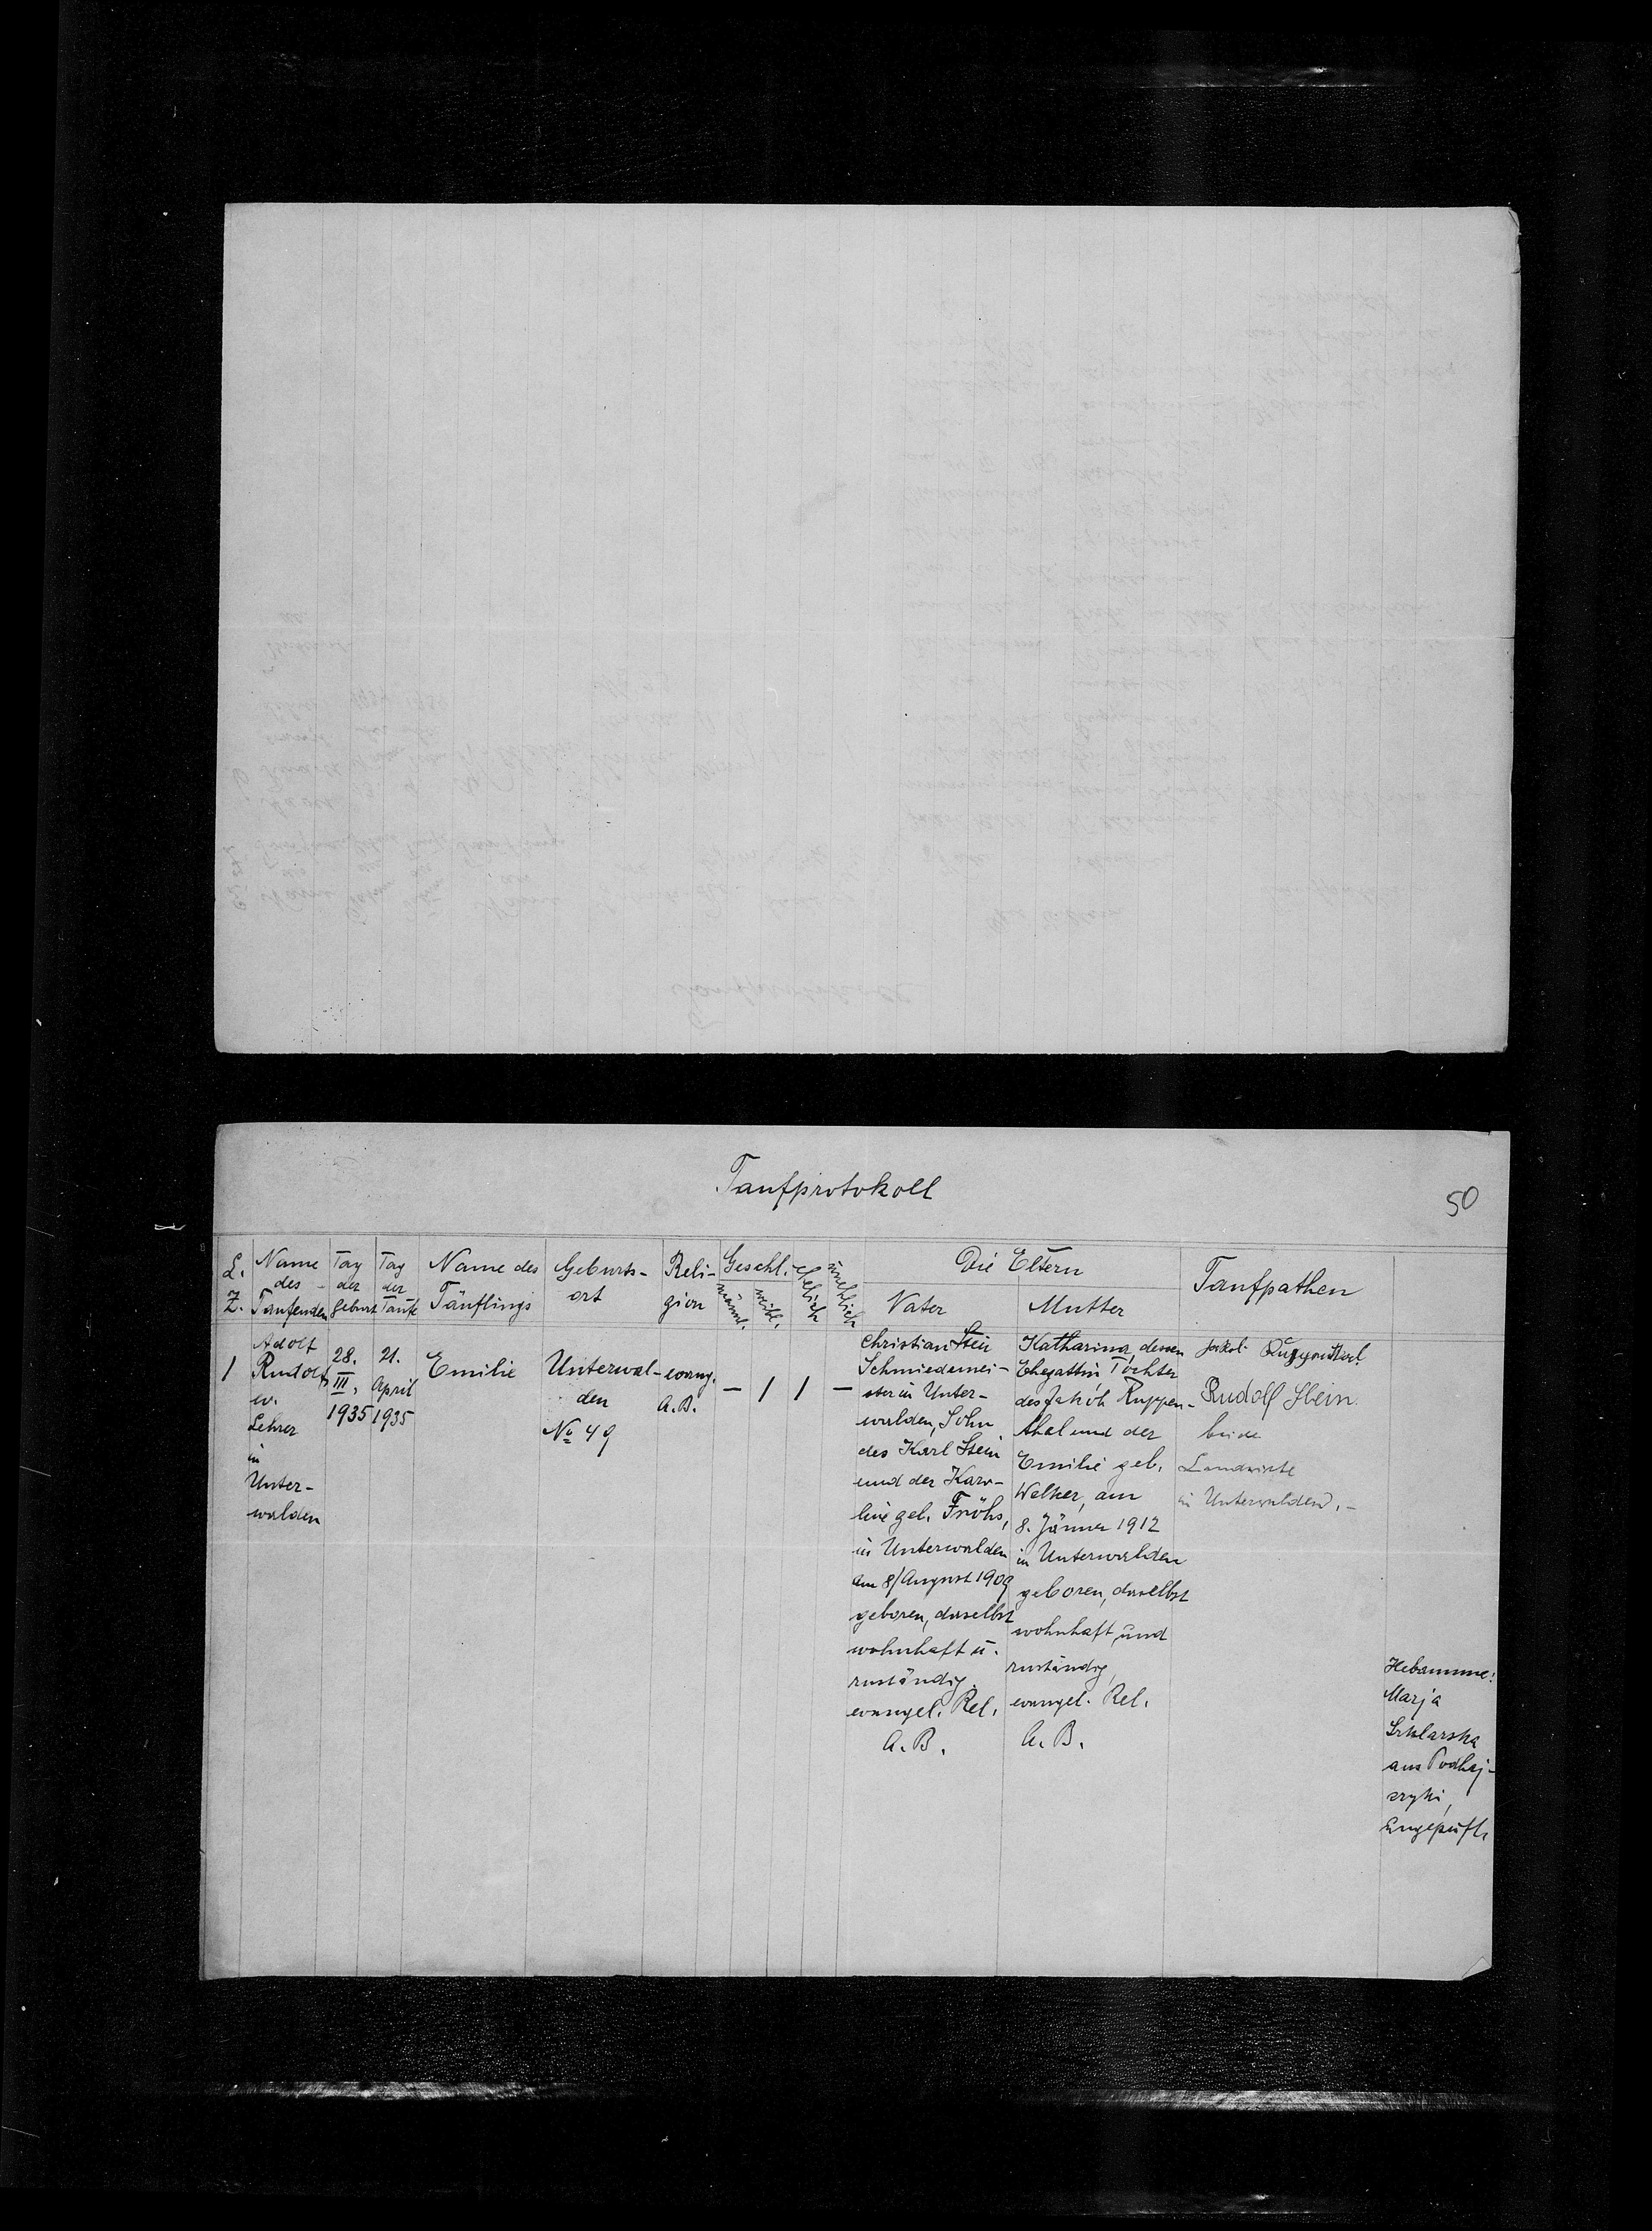 Taufprotokoll
50
L.
Z.
Name
des
Taufenden
Tag
der
Geburt
Tag
der
Taufe
Name des
Täuflings
Geburts-
ort
Reli-
gion
Geschl.
männl.
weibl.
ehelich
unehelich
Die Eltern
Vater
Mutter
Taufpathen
1
Adolf
Rudolf,
ev.
Lehrer
in
Unter-
walden
28.
III.
1935
21.
April
1935
Emilie
Unterwal-
den
No 49
evang.
A.B.
—
1
1
—
Christian Stein
Schmiedemei-
ster in Unter-
walden, Sohn
des Karl Stein
und der Karo-
line geb. Fröhs,
in Unterwalden
am 8/August 1909
geboren, daselbst
wohnhaft u.
zuständig.
evangel. Rel.
A.B.
Katharina, dessen
Ehegattin, Tochter
des Jakob Ruppen-
thal und der
Emilie geb.
Walker, am
8. Jänner 1912
in Unterwalden
geboren, daselbst
wohnhaft und
zuständig,
evangel. Rel.
A.B.
Jakob Ruppenthal
Rudolf Stein.
beide
Landwirte
in Unterwalden.-
Hebamme:
Marja
Szklarska
aus Podhaj-
czyki,